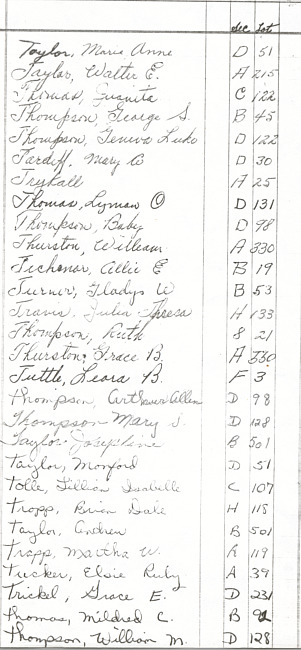 Sec. Lot
Taylor, Maria Anne D 51
Taylor, Walter E. A 215
Thomas, Juanita C 122
Thompson, George S. B 45
Thompson, Geneva Luko D 122
Tardiff, Mary C D 30
Tryhall A 25
Thomas, Lyman O D 131
Thompson, Baby D 98
Thurston, William A 330
Tichenor, Allie E B 19
Turner, Gladys W B 53
Travis, Julia Theresa H 133
Thompson, Ruth 8 21
Thurston, Grace B. A 330
Tuttle, Leora B. F 3
Thompson, Arthur Allen D 98
Thompson Mary S. D 128
Taylor Josephine B 501
Taylor, Monford D 51
Tolle, Lillian Isabelle C 107
Tropp, Brian Dale H 115
Taylor, Andrew B 501
Trapp, Martha W. K 119
Tucker, Elsie Ruby A 39
Trickel, Grace E. D 231
Thomas, Mildred C. B
Thompson, William M. D 128